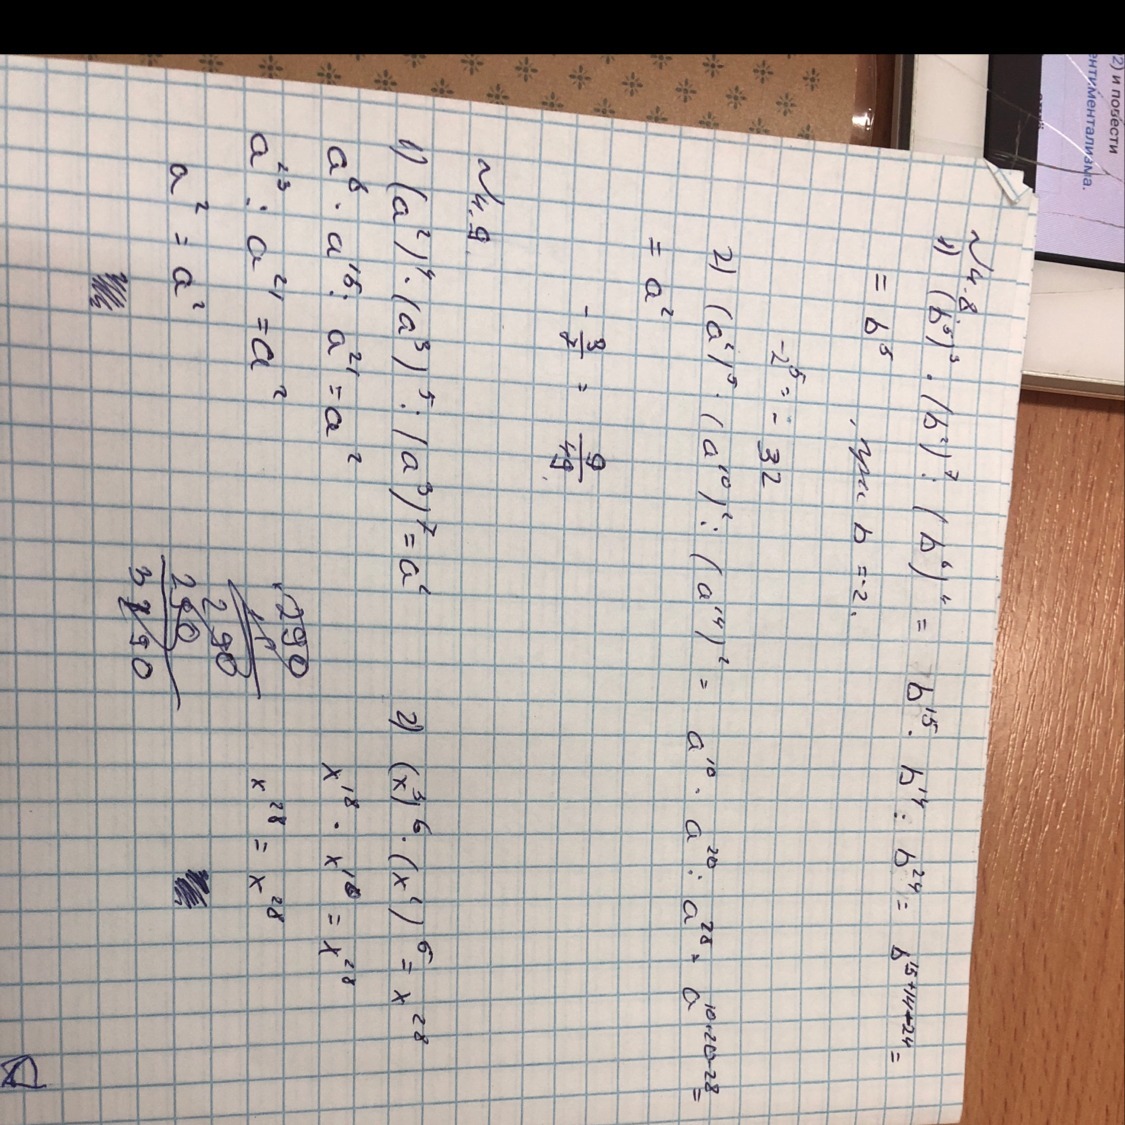 2) и повести
ентиментализма.
№4.8
1) (b⁵)³ · (b²)⁷ : (b⁶)⁴ = b¹⁵ · b¹⁴ : b²⁴ = b¹⁵⁺¹⁴⁻²⁴ =
= b⁵, при b = -2.
-2⁵ = -32
2) (a²)⁵ · (a¹⁰)² : (a¹⁴)² = a¹⁰ · a²⁰ : a²⁸ = a¹⁰⁺²⁰⁻²⁸ =
= a²
-3/7 = 9/49.
№4.9.
1) (a²)⁴ · (a³)⁵ : (a³)⁷ = a²
a⁸ · a¹⁵ : a²¹ = a²
a²³ : a²¹ = a²
a² = a²
2) (x³)⁶ · (x²)⁵ = x²⁸
x¹⁸ · x¹⁰ = x²⁸
x²⁸ = x²⁸
290
290